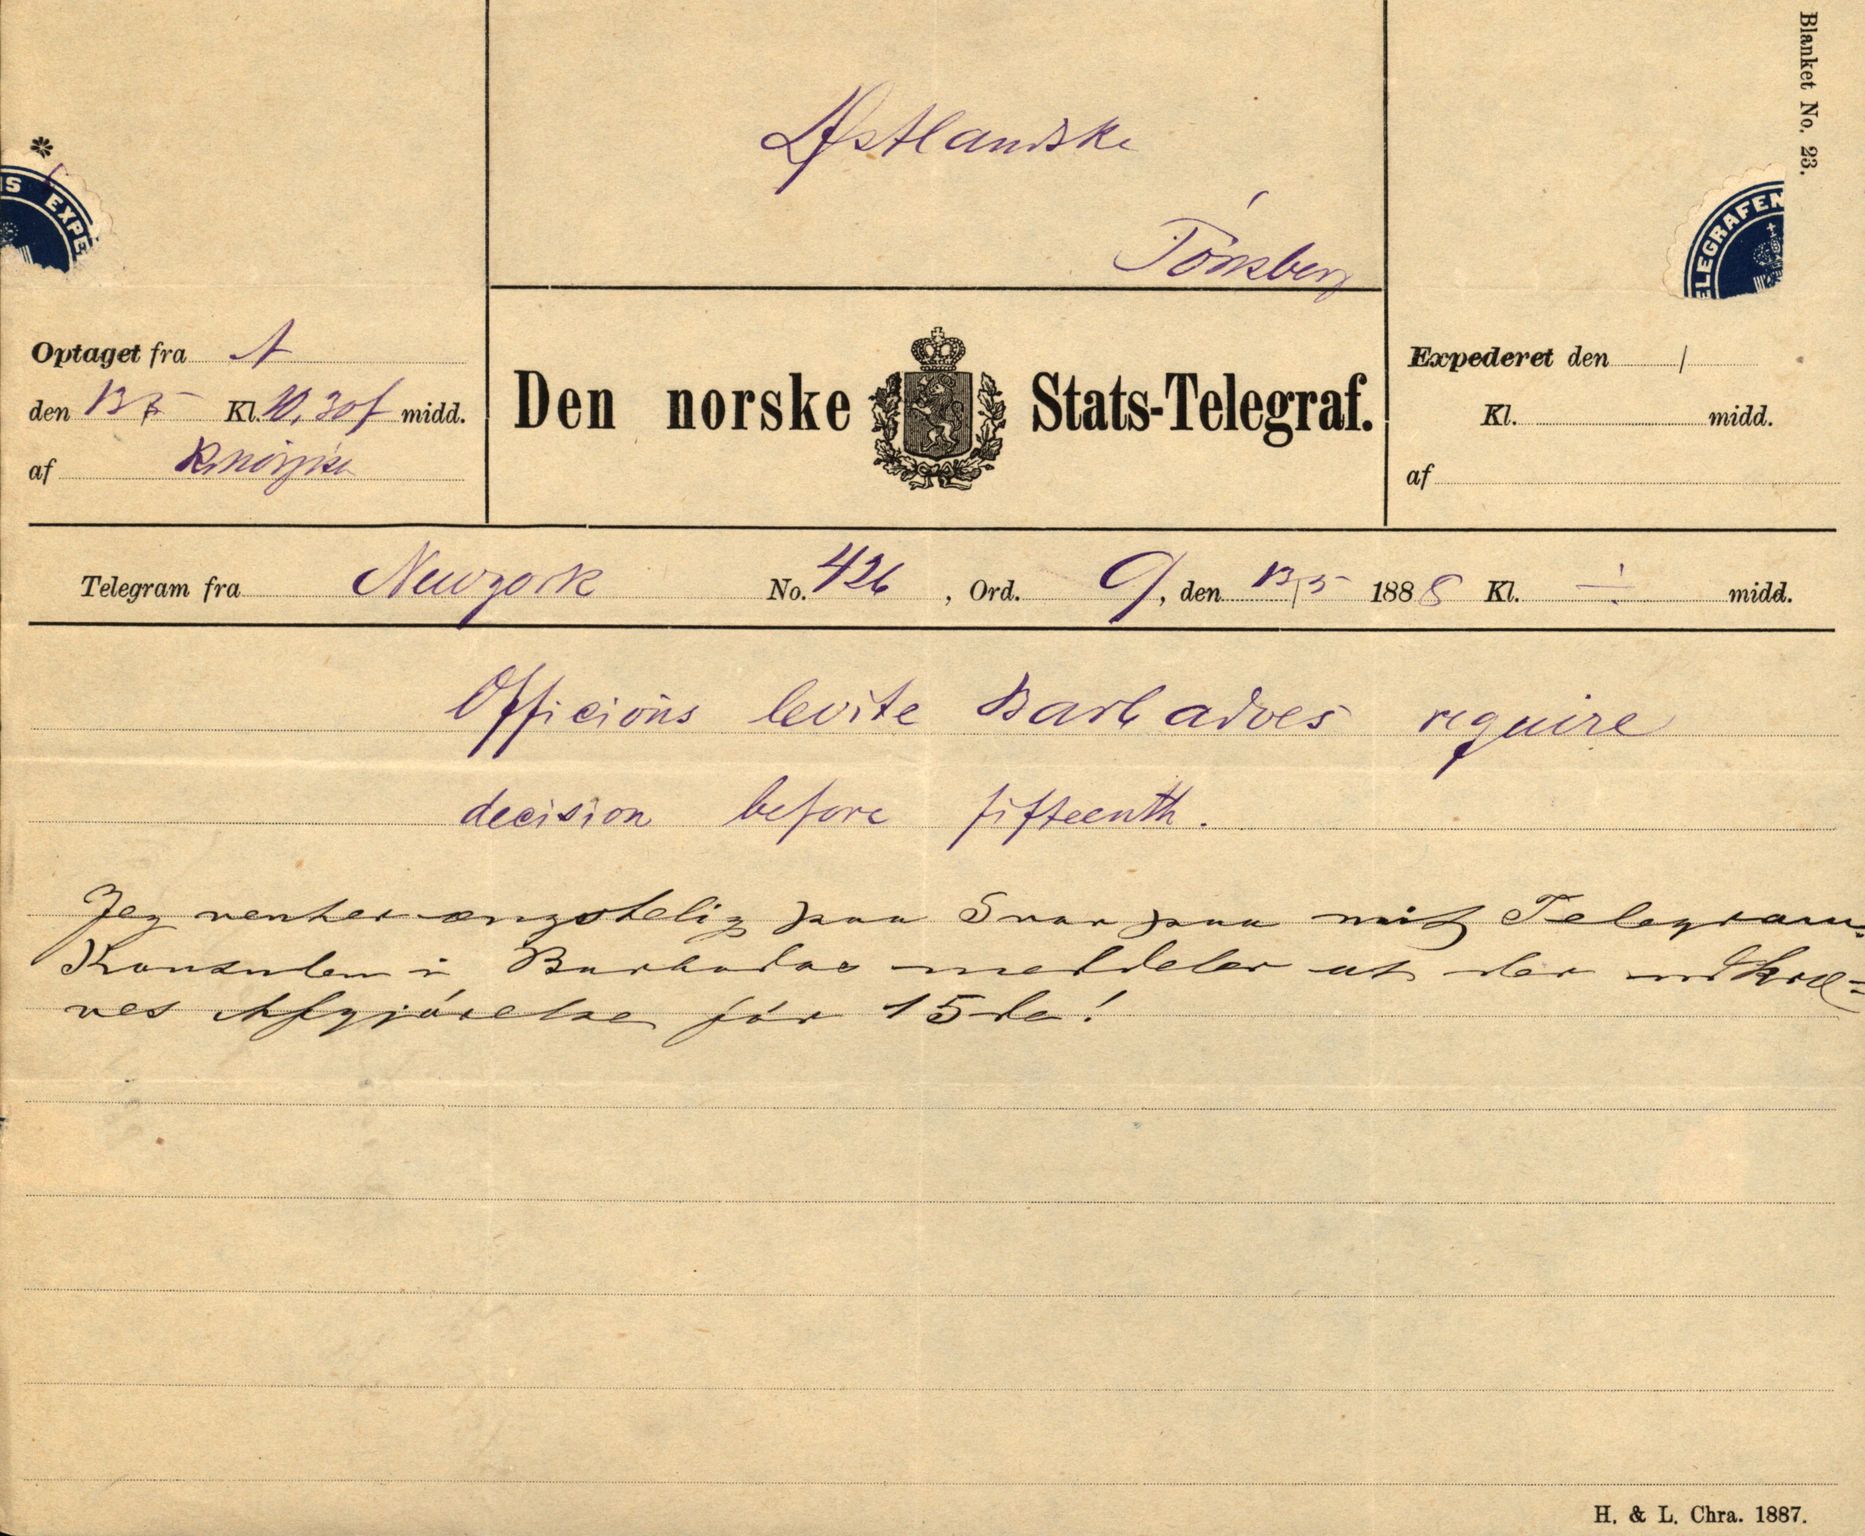 Blanket No. 23.
Østlandske
Tønsberg
NS EXPE
TELEGRAFEN
Optaget fra A
den 13/5 Kl. 10,30 f midd.
af
Den norske Stats-Telegraf.
Expederet den /
Kl. midd.
af
Telegram fra Newyork No. 426, Ord. 9, den 13/5 1888 Kl. ÷ midd.
Officious levite Barbadoes require
decision before fifteenth.
Jeg venter ængstelig paa Svar paa mit Telegram.
Konsulen i Barbados meddeler at der udkræ=
ves Afgjörelse för 15de!
H. & L. Chra. 1887.